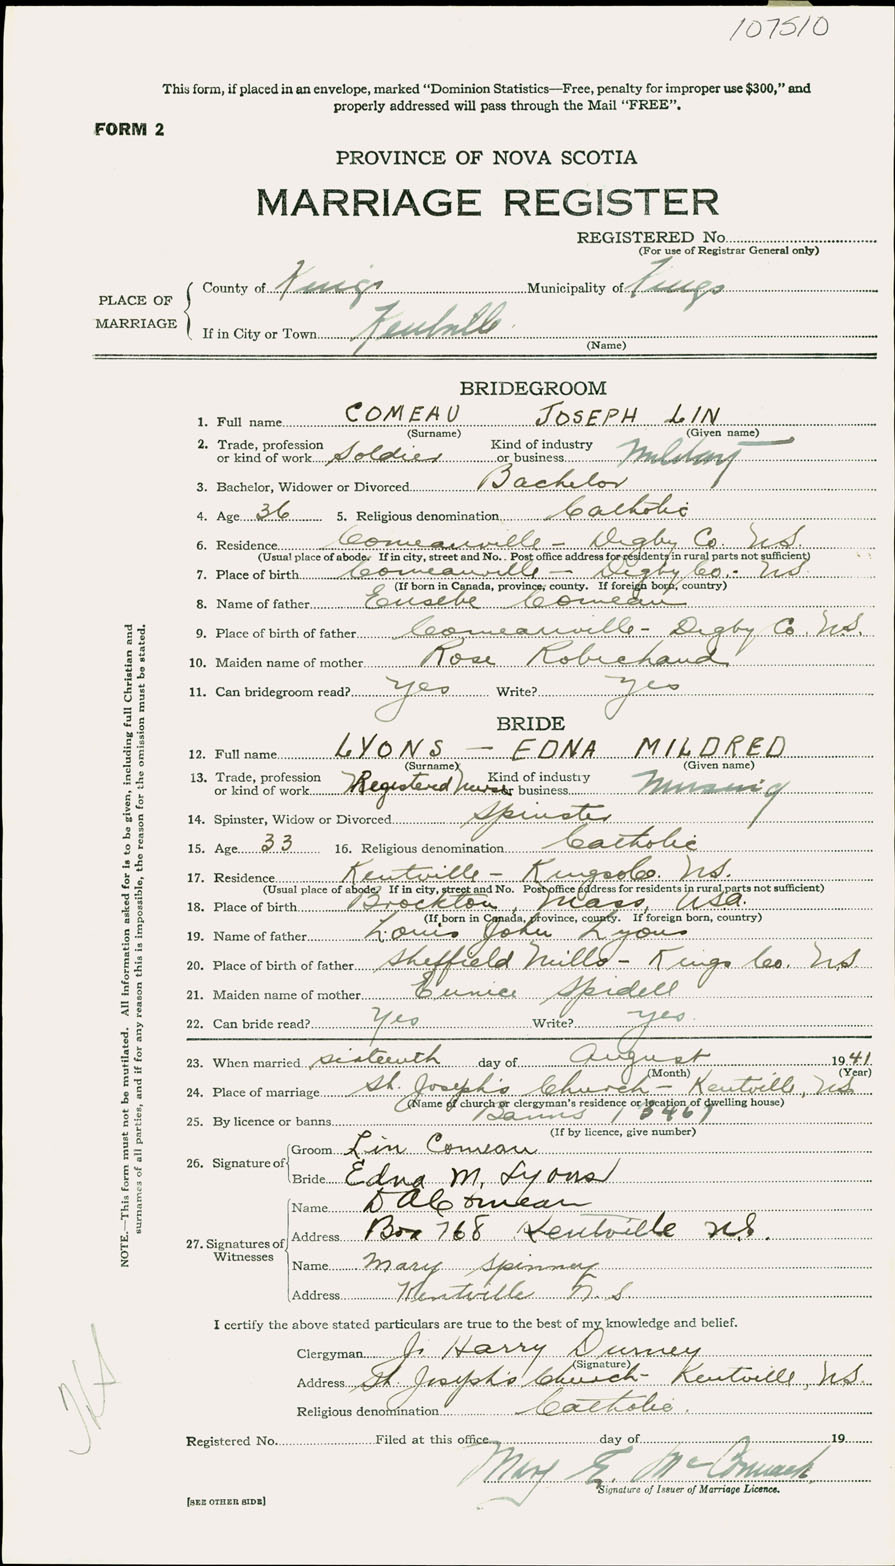 107510
This form, if placed in an envelope, marked “Dominion Statistics—Free, penalty for improper use $300,” and
properly addressed will pass through the Mail “FREE”.
FORM 2
PROVINCE OF NOVA SCOTIA
MARRIAGE REGISTER
REGISTERED No.
(For use of Registrar General only)
PLACE OF MARRIAGE
County of Kings Municipality of Kings
If in City or Town Kentville
(Name)
BRIDEGROOM
1. Full name COMEAU JOSEPH LIN
(Surname) (Given name)
2. Trade, profession or kind of work Soldier Kind of industry or business Military
3. Bachelor, Widower or Divorced Bachelor
4. Age 36 5. Religious denomination Catholic
6. Residence Comeauville - Digby Co. NS
(Usual place of abode. If in city, street and No.. Post office address for residents in rural parts not sufficient)
7. Place of birth Comeauville - Digby Co. - NS
(If born in Canada, province, county. If foreign born, country)
8. Name of father Eusebe Comeau
9. Place of birth of father Comeauville - Digby Co. N.S.
10. Maiden name of mother Rose Robichaud
11. Can bridegroom read? Yes Write? Yes
BRIDE
12. Full name LYONS - EDNA MILDRED
(Surname) (Given name)
13. Trade, profession or kind of work Registered Nurse Kind of industry or business Nursing
14. Spinster, Widow or Divorced Spinster
15. Age 33 16. Religious denomination Catholic
17. Residence Kentville - Kings Co. NS.
(Usual place of abode. If in city, street and No. Post office address for residents in rural parts not sufficient)
18. Place of birth Brockton, Mass, USA.
(If born in Canada, province, county. If foreign born, country)
19. Name of father Louis John Lyons
20. Place of birth of father Sheffield Mills - Kings Co. NS
21. Maiden name of mother Eunice Spidell
22. Can bride read? Yes Write? Yes
23. When married sixteenth day of August 1941
(Month) (Year)
24. Place of marriage St. Joseph's Church - Kentville, NS
(Name of church or clergyman's residence or location of dwelling house)
25. By licence or banns Banns 13467
(If by licence, give number)
26. Signature of
Groom Lin Comeau
Bride Edna M. Lyons
27. Signatures of Witnesses
Name D A Comeau
Address Box 768 Kentville N.S.
Name Mary Spinney
Address Kentville N.S
I certify the above stated particulars are true to the best of my knowledge and belief.
Clergyman J. Harry Durney
(Signature)
Address St. Joseph's Church - Kentville, NS.
Religious denomination Catholic.
Registered No. Filed at this office day of 19
Mary E. McCormack
Signature of Issuer of Marriage Licence.
[SEE OTHER SIDE]
NOTE.—This form must not be mutilated. All information asked for is to be given, including full Christian and
surnames of all parties, and if for any reason this is impossible, the reason for the omission must be stated.